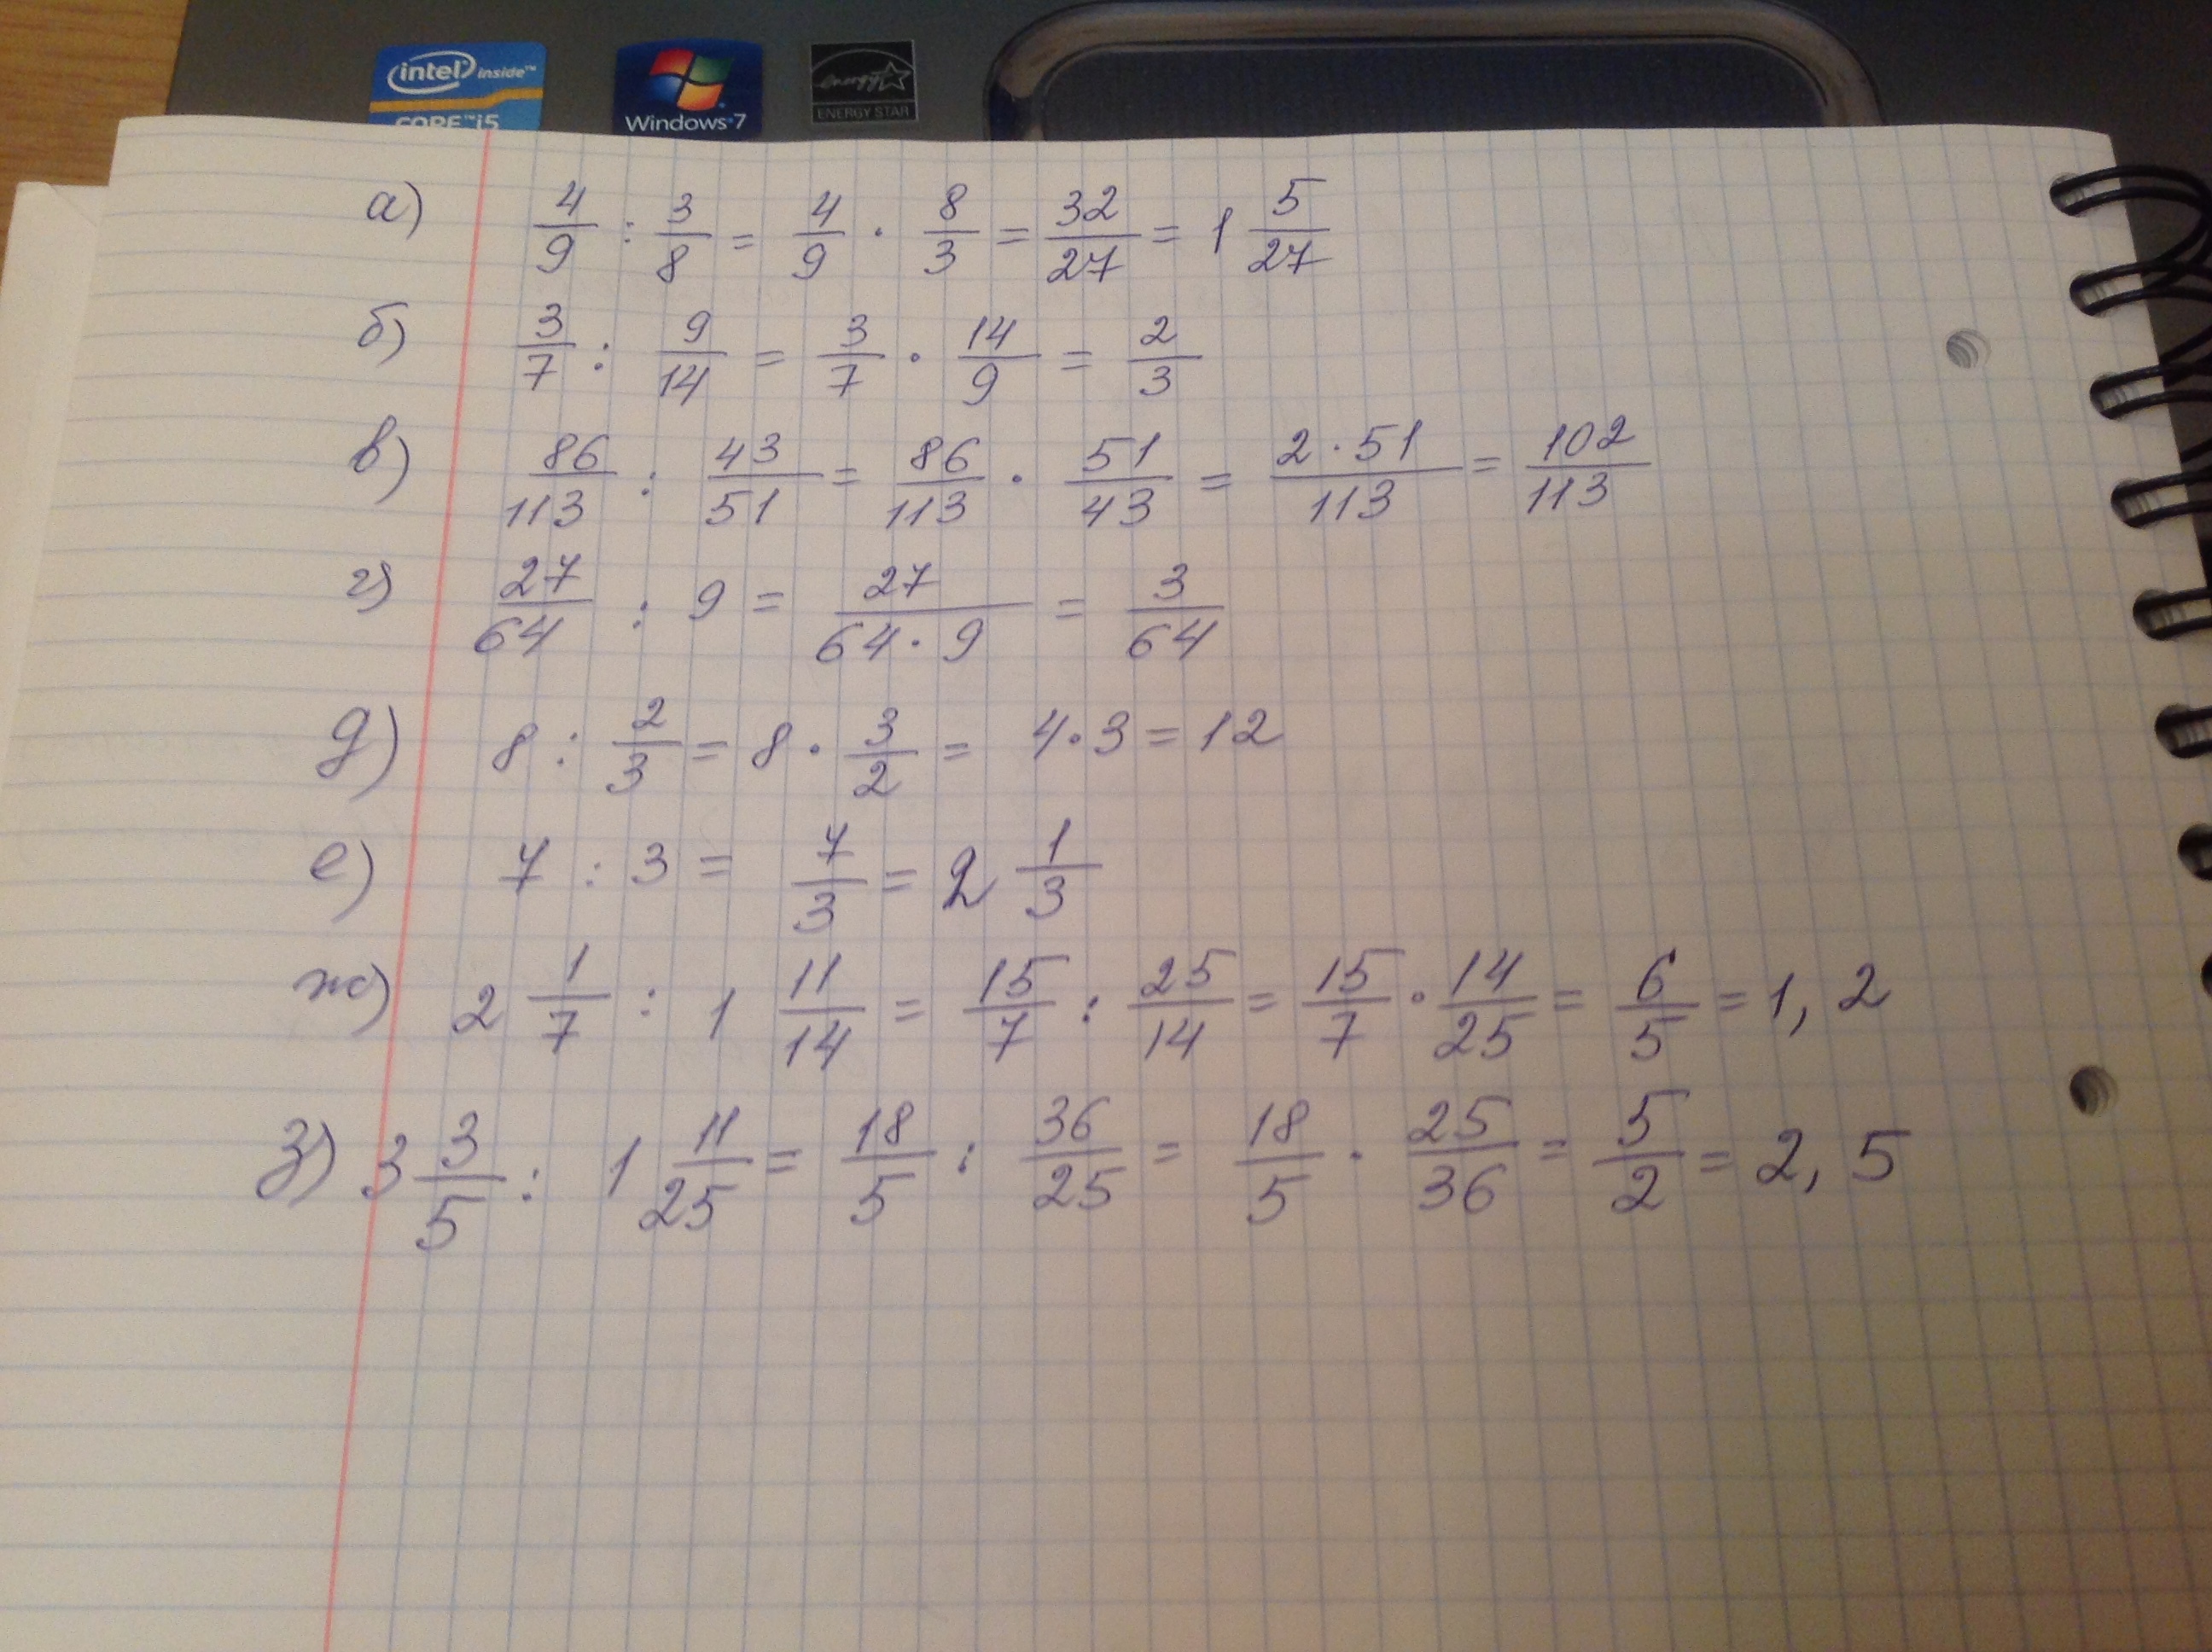 intel inside™
CORE™ i5
Windows 7
energy
ENERGY STAR
а) 4/9 : 3/8 = 4/9 · 8/3 = 32/27 = 1 5/27
б) 3/7 : 9/14 = 3/7 · 14/9 = 2/3
в) 86/113 : 43/51 = 86/113 · 51/43 = 2·51/113 = 102/113
г) 27/64 : 9 = 27/64·9 = 3/64
д) 8 : 2/3 = 8 · 3/2 = 4·3 = 12
е) 7 : 3 = 7/3 = 2 1/3
ж) 2 1/7 : 1 11/14 = 15/7 : 25/14 = 15/7 · 14/25 = 6/5 = 1,2
з) 3 3/5 : 1 11/25 = 18/5 : 36/25 = 18/5 · 25/36 = 5/2 = 2,5